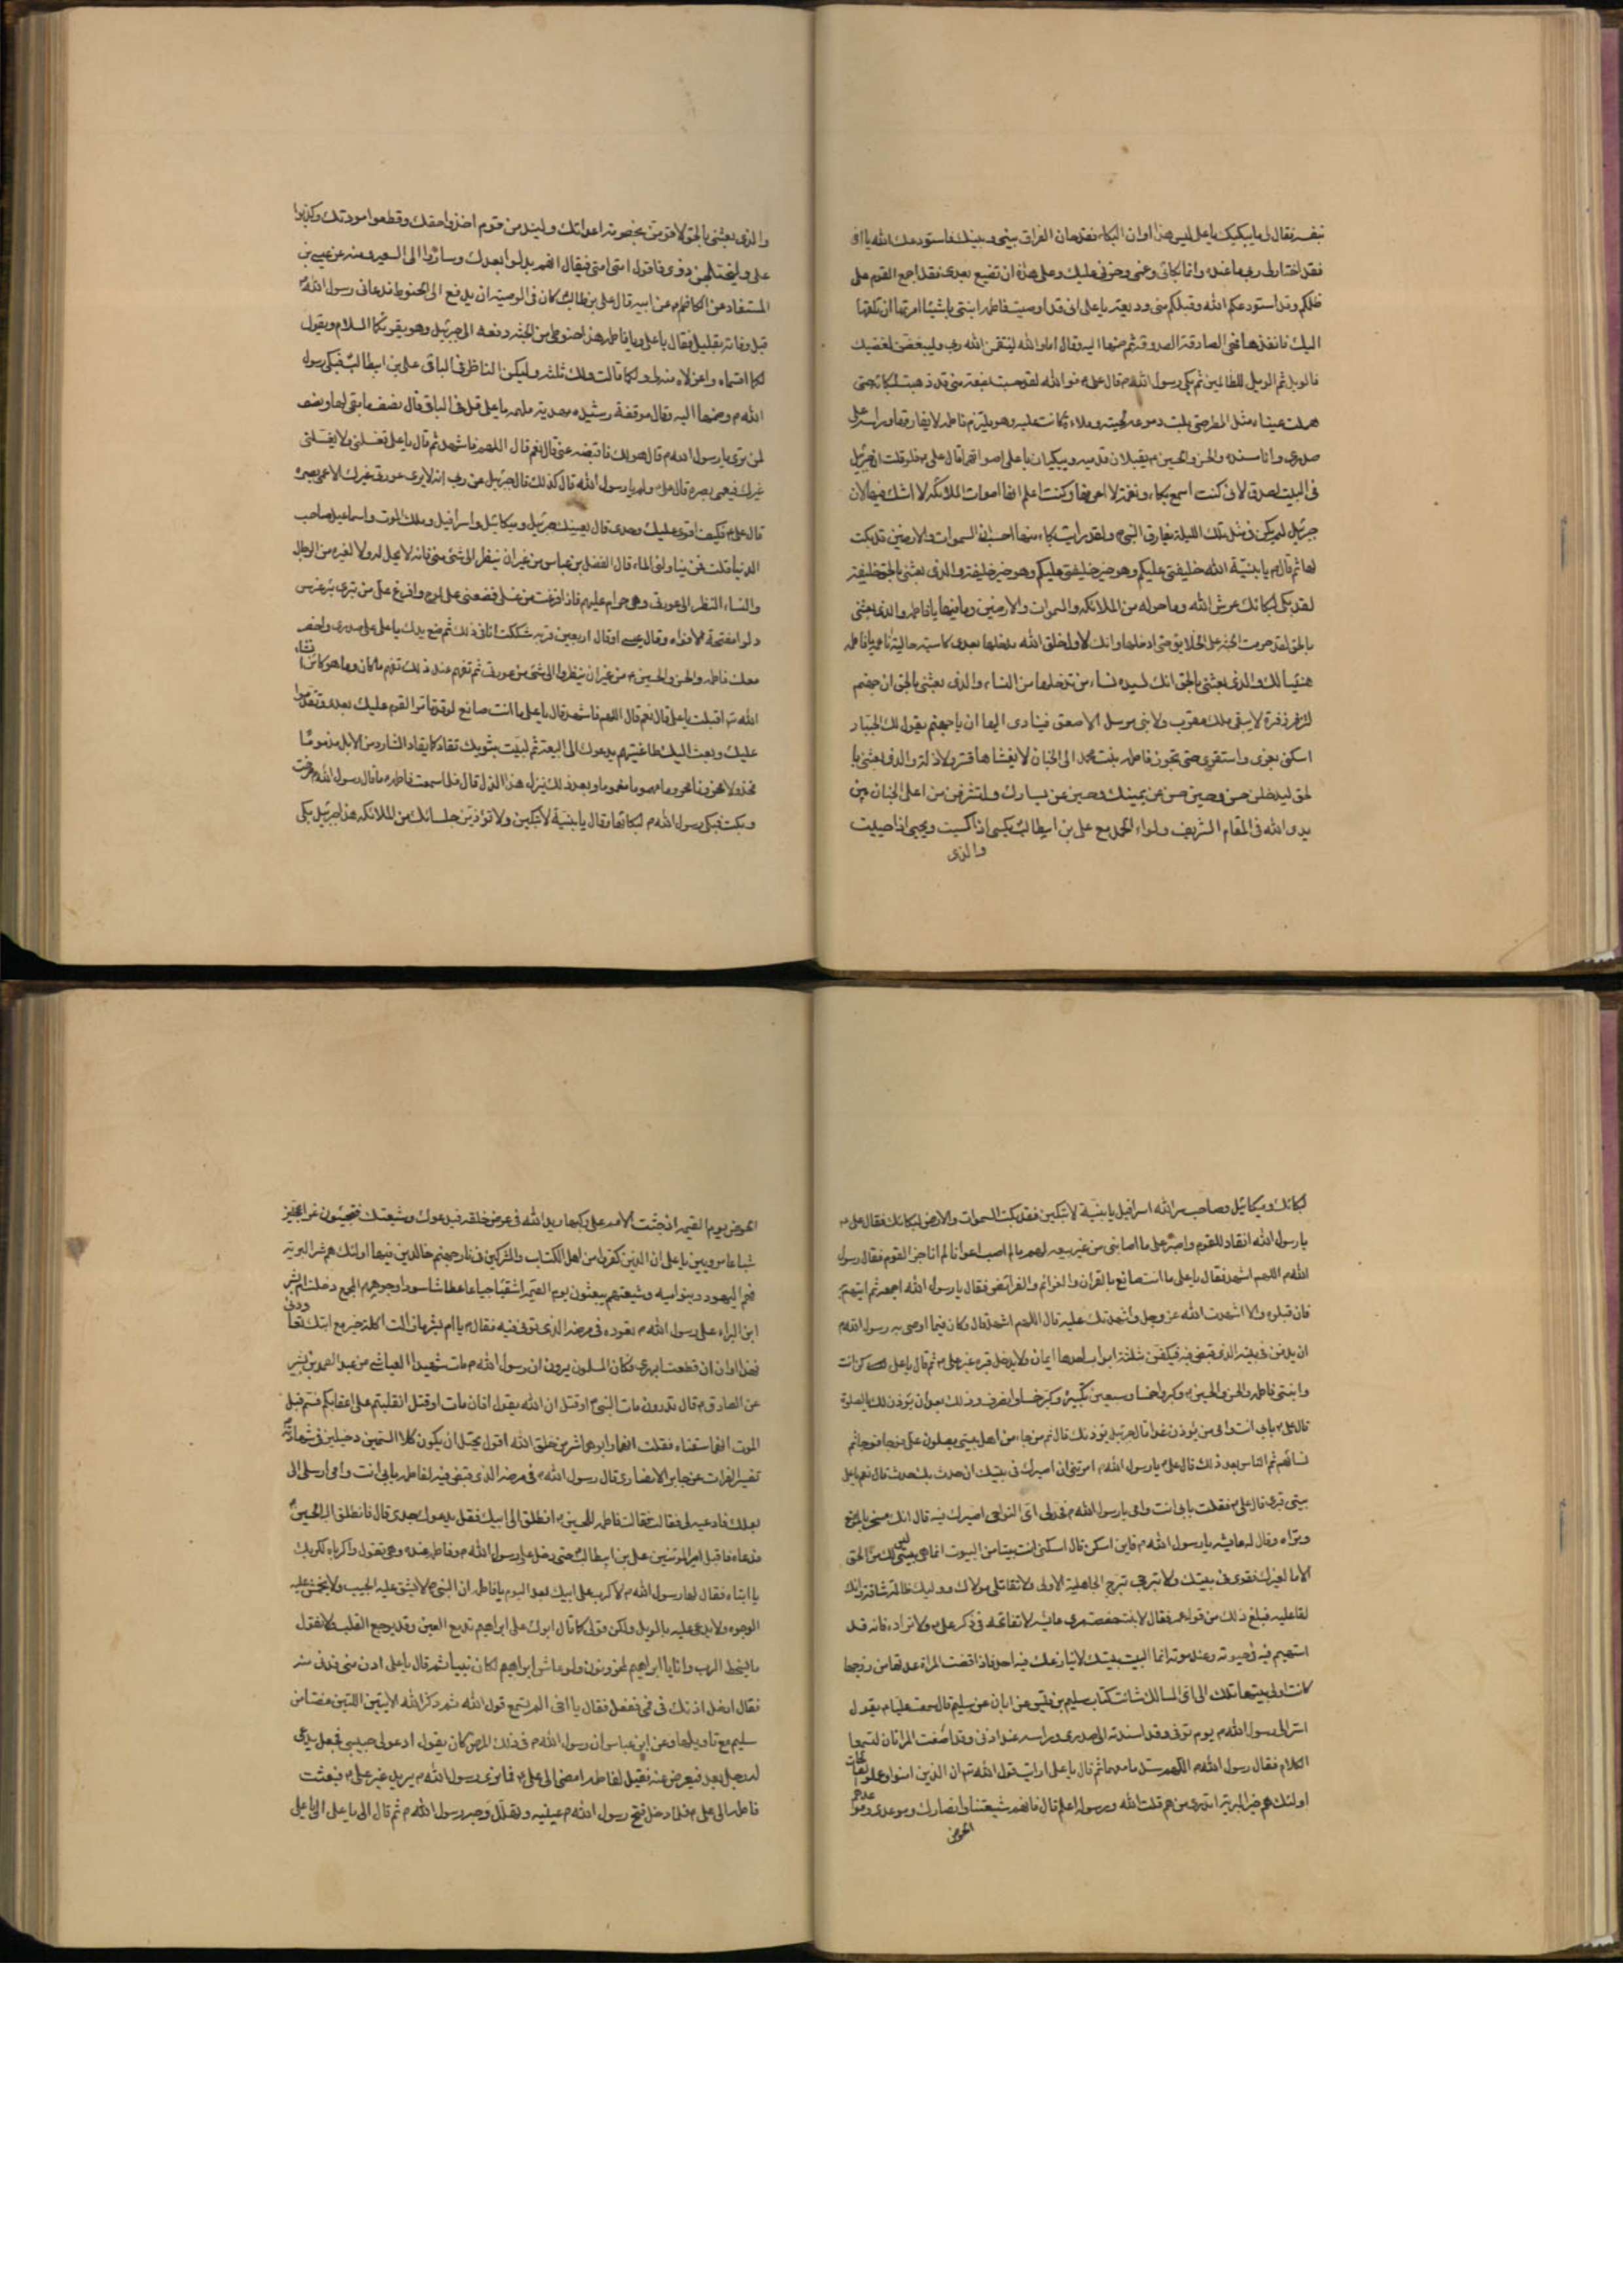 بنفسه فقال لى ما يبكيك يا على ليس هذا اوان البكاء فقد حان الفراق بينى وبينك فاستودعك الله يا اخى
فقد اختار لى ربى ما عنده وانما بكائى وغمى وحزنى عليك وعلى هذه ان تضيع بعدى فقد اجمع القوم على
ظلمكم وقد استودعكم الله وقبلكم منى وديعة يا على انى قد اوصيت فاطمة ابنتى باشياء امرتها ان تلقيها
اليك فانفذها فهى الصادقة الصدوقة ثم ضمها اليه وقال اما والله لينتقمن الله ربى وليغضبن لغضبك
فالويل ثم الويل للظالمين ثم بكى رسول الله م قال على م فوالله لقد حسبت بضعة منى قد ذهبت لبكائه حتى
هملت عيناه مثل المطر حتى بلت دموعه لحيته وملاءة كانت عليه وهو يلتزم فاطمة لا يفارقها وراسه على
صدرى وانا مسنده والحسن والحسين م يقبلان قدميه ويبكيان باعلى اصواتهما قال على م فلو قلت ان جبرئيل
فى البيت لصدقت لانى كنت اسمع بكاء ونغمة لا اعرفها وكنت اعلم انها اصوات الملائكة لا اشك فيها لان
جبرئيل لم يكن فى مثل تلك الليلة يفارق النبى م ولقد رايت بكاء منها احسب ان السموات والارضين قد بكت
لها ثم قال لها يا بنية الله خليفتى عليكم وهو خير خليفة والذى بعثنى بالحق
لقد بكى لبكائك عرش الله وما حوله من الملائكة والسموات والارضين وما فيها يا فاطمة والذى بعثنى
بالحق لقد حرمت الجنة على الخلايق حتى ادخلها وانك لاول خلق الله يدخلها بعدى كاسية حالية ناعمة يا فاطمة
هنيئا لك والذى بعثنى بالحق انك لسيدة نساء من تدخلها من النساء والذى بعثنى بالحق ان جهنم
لتزفر زفرة لا يبقى ملك مقرب ولا نبى مرسل الا صعق فينادى اليها ان يا جهنم يقول لك الجبار
اسكنى بعزى واستقرى حتى تجوز فاطمة بنت محمد الى الجنان لا يغشاها قتر ولا ذلة والذى بعثنى با
لحق ليدخلن حسن وحسين حسن عن يمينك وحسين عن يسارك ولتشرفن من اعلى الجنان بين
يدى الله فى المقام الشريف ولواء الحمد مع على بن ابيطالب يكسى اذا كسيت ويحبى اذا حبيت
والذى
والذى بعثنى بالحق لاقومن بخصومة اعدائك وليندمن قوم اخذوا حقك وقطعوا مودتك وكذبوا
على وليختلجن دونى فاقول امتى امتى فيقال انهم بدلوا بعدك وصاروا الى السعير ومنه عن عيسى بن
المستفاد عن الكاظم م عن ابيه قال على بن طالب كان فى الوصية ان يدفع الى الحنوط فدعانى رسول الله م
قبل وفاته بقليل فقال يا على ويا فاطمة هذا حنوطى من الجنة دفعه الى جبرئيل وهو يقرئكما السلام ويقول
لكما اقسماه واعزلاه منه لى ولكما قالت لك ثلثه وليكن الناظر فى الباقى على بن ابيطالب فبكى رسول
الله م وضمها اليه وقال موفقة رشيدة مهدية ملهمة يا على قل فى الباقى قال نصف ما بقى لها ونصف
لمن ترى يا رسول الله م قال هو لك فاقبضه عنى قال نعم قال اللهم فاشهد ثم قال يا على تغسلنى ولا يغسلنى
غيرك فيعمى بصره قال على م ولم يا رسول الله قال كذلك قال جبرئيل عن ربى انه لا يرى عورتى غيرك الا عمى بصره
قال على م فكيف اقوى عليك وحدى قال يعينك جبرئيل وميكائيل واسرافيل وملك الموت واسماعيل صاحب
الدنيا قلت فمن يناولنى الماء قال الفضل بن عباس من غير ان ينظر الى شئ منى فانه لا يحل له ولا لغيره من الرجال
والنساء النظر الى عورتى وهى حرام عليهم فاذا فرغت من غسلى فضعنى على لوح وافرغ على من بئرى بئر غرس
دلوا مفتحة الافواه وقال عيسى او قال اربعين قربة شككت انا فى ذلك ثم ضع يدك يا على على صدرى واحضر
معك فاطمة والحسن والحسين م من غير ان ينظروا الى شئ من عورتى ثم تفهم عند ذلك تفهم ما كان وما هو كائن انشاء
الله تع اقبلت يا على قال نعم قال اللهم فاشهد قال يا على ما انت صانع لو قد تامر القوم عليك بعدى وتقدموا
عليك وبعث اليك طاغيتهم يدعوك الى البيعة ثم لببت بثوبك تقاد كما يقاد الشارد من الابل مذموما
مخذولا محزونا مهموما وبعد ذلك ينزل هذا الذل قال فلما سمعت فاطمة ما قال رسول الله م صرخت
وبكت فبكى رسول الله م لبكائها وقال يا بنية لا تبكين ولا تؤذين جلسائك من الملائكة هذا جبرئيل بكى
لبكائك وميكائيل وصاحب سر الله اسرافيل يا بنية لا تبكين فقد بكت السموات والارض لبكائك فقال على م
يا رسول الله انقاد للقوم واصبر على ما اصابنى من غير بيعة لهم ما لم اصب اعوانا لم اناجز القوم فقال رسول
الله م اللهم اشهد فقال يا على ما انت صانع بالقران والعزائم والفرائض فقال يا رسول الله اجمعه ثم اتيهم به
فان قبلوه والا اشهدت الله عز وجل واشهدتك عليه قال اللهم اشهد قال وكان فيما اوصى به رسول الله م
ان يدفن فى بيته الذى قبض فيه ويكفن بثلثة اثواب احدها ايمان ولا يدخل قبره غير على م ثم قال يا على كن انت
وابنتى فاطمة والحسن والحسين م وكبروا خمسا وسبعين تكبيرة وكبر خمسا وانصرف وذلك بعد ان يؤذن لك بالصلوة
قال على م بابى انت وامى من يؤذن غدا قال جبرئيل يؤذنك قال ثم من جاء من اهل بيتى يصلون على فوجا فوجا ثم
نساؤهم ثم الناس بعد ذلك قال على م يا رسول الله م امرتنى ان اصيرك فى بيتك ان حدث بك حدث قال نعم يا على
بيتى قبرى قال على م فقلت بابى انت وامى يا رسول الله م فحد لى اى النواحى اصيرك فيه قال انك مسخر بالموضع
وتراه وقالت له عائشة يا رسول الله م فاين اسكن قال اسكنى انت بيتا من البيوت انما هى بيتى ليس لك من الحق
الا ما لغيرك فقرى فى بيتك ولا تبرجى تبرج الجاهلية الاولى ولا تقاتلى مولاك ووليك ظالمة شاقة وانك
لفاعليه فبلغ ذلك من قوله عمر فقال لابنته حفصة مرى عائشة لا تفاتحه فى ذكر على م ولا تراده فانه قد
استهيم فيه فى حيوته وعند موته انما البيت بيتك لا ينازعك فيه احد فاذا قضت المراة عدتها من زوجها
كانت اولى ببيتها تسلك الى اى المسالك شائت كتاب سليم بن قيس عن ابان عن سليم قال سمعت عليا م يقول
اسر الى رسول الله م يوم توفى وقد اسندته الى صدرى وراسه عند اذنى وقد اصغت المراتان لتسمعا
الكلام فقال رسول الله م اللهم سد مسامعهما ثم قال يا على ارايت قول الله تع ان الذين امنوا وعملوا الصالحات
اولئك هم خير البرية اتدرى من هم قلت الله ورسوله اعلم قال فانهم شيعتنا وانصارك وموعدى وموعدهم
الحوض
الحوض يوم القيمة اذ جثت الامم على ركبها وبدا لله فى عرض خلقه فيدعوك وشيعتك فتجيئون غرا محجلين
شباعا مرويين يا على ان الذين كفروا من اهل الكتاب والمشركين فى نار جهنم خالدين فيها اولئك هم شر البرية
فهم اليهود وبنو امية وشيعتهم يبعثون يوم القيمة اشقياء جياعا عطاشا مسودا وجوههم دخلت ام بشر
ابن البراء على رسول الله م تعوده فى مرضه الذى توفى فيه فقال م يا ام بشر ما زالت اكلة خيبر مع ابنك تعاودنى
فهذا اوان ان قطعت ابهرى فكان المسلمون يرون ان رسول الله م مات شهيدا العياشى عن عبد الصمد بن بشير
عن الصادق م قال تدرون مات النبى م او قتل ان الله يقول افان مات او قتل انقلبتم على اعقابكم فسم قبل
الموت انهما سقتاه فقلت انهما وابوهما شر من خلق الله اقول يحتمل ان يكون كلا السمين دخيلين فى شهادته م
تفسير الفرات عن جابر الانصارى قال رسول الله م فى مرضه الذى قبض فيه لفاطمة بابى انت وامى ارسلى الى
بعلك فادعيه لى فقالت فاطمة للحسين م انطلق الى ابيك فقل يدعوك جدى قال فانطلق اليه الحسين م
فدعاه فاقبل امير المؤمنين على بن ابيطالب حتى دخل على رسول الله م وفاطمة عنده وهى تقول واكرباه لكربك
يا ابتاه فقال لها رسول الله م لا كرب على ابيك بعد اليوم يا فاطمة ان النبى م لا يشق عليه الجيب ولا يخمش عليه
الوجوه ولا يدعى عليه بالويل ولكن قولى كما قال ابوك على ابراهيم تدمع العين وقد يوجع القلب ولا نقول
ما يسخط الرب وانا بك يا ابراهيم لمحزونون ولو عاش ابراهيم لكان نبيا ثم قال يا على ادن منى فدنى منه
فقال ادخل اذنك فى فمى ففعل فقال يا اخى الم تسمع قول الله ثم ذكر الله الايتين اللتين مضتا من
سليم مع تاويلها وعن ابن عباس ان رسول الله م فى ذلك المرض كان يقول ادعو لى حبيبى فجعل يدعى
له رجل بعد رجل فيعرض عنه فقيل لفاطمة امضى الى على م فما نرى رسول الله م يريد غير على م فبعثت
فاطمة الى على م فلما دخل فتح رسول الله م عينيه وتهلل وجهه رسول الله م ثم قال الى يا على الى يا على